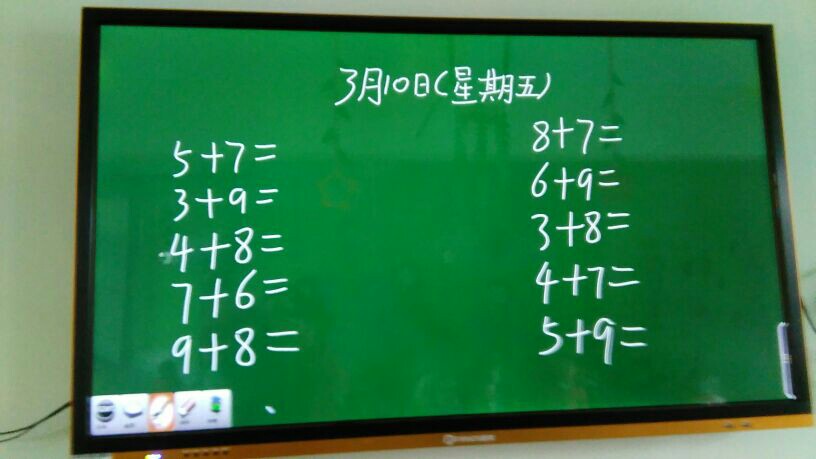 3月10日(星期五)
5+7=
3+9=
4+8=
7+6=
9+8=
8+7=
6+9=
3+8=
4+7=
5+9=